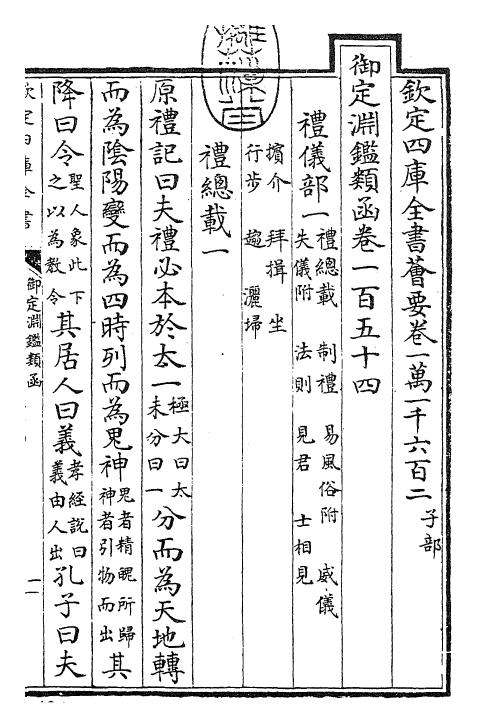 欽定四庫全書薈要卷一萬一千六百二 子部
御定淵鑑類函卷一百五十四
禮儀部一 禮總載 制禮 易風俗附 威儀
失儀附 法則 見君 士相見
擯介 拜揖 坐
行步 趨 灑埽
禮總載一
原禮記曰夫禮必本於太一 極大曰太
未分曰一 分而為天地轉
而為陰陽變而為四時列而為鬼神 鬼者精魄所歸
神者引物而出 其
降曰令 聖人象此下
之以為教令 其居人曰義 孝經說曰
義由人出 孔子曰夫
欽定四庫全書
御定淵鑑類函
一